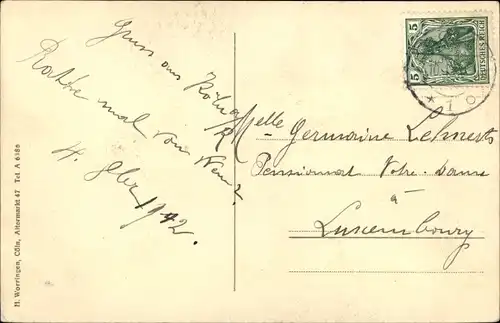 Gruss aus Köln a/R
Rathe mal von Wem?
4. 8br 1912.
Melle Germaine Lehnerts
Pensionnat Notre-Dame
à
Luxembourg
5 DEUTSCHES REICH 5
* 1 o
H. Worringen, Cöln, Altermarkt 47 Tel A 6186